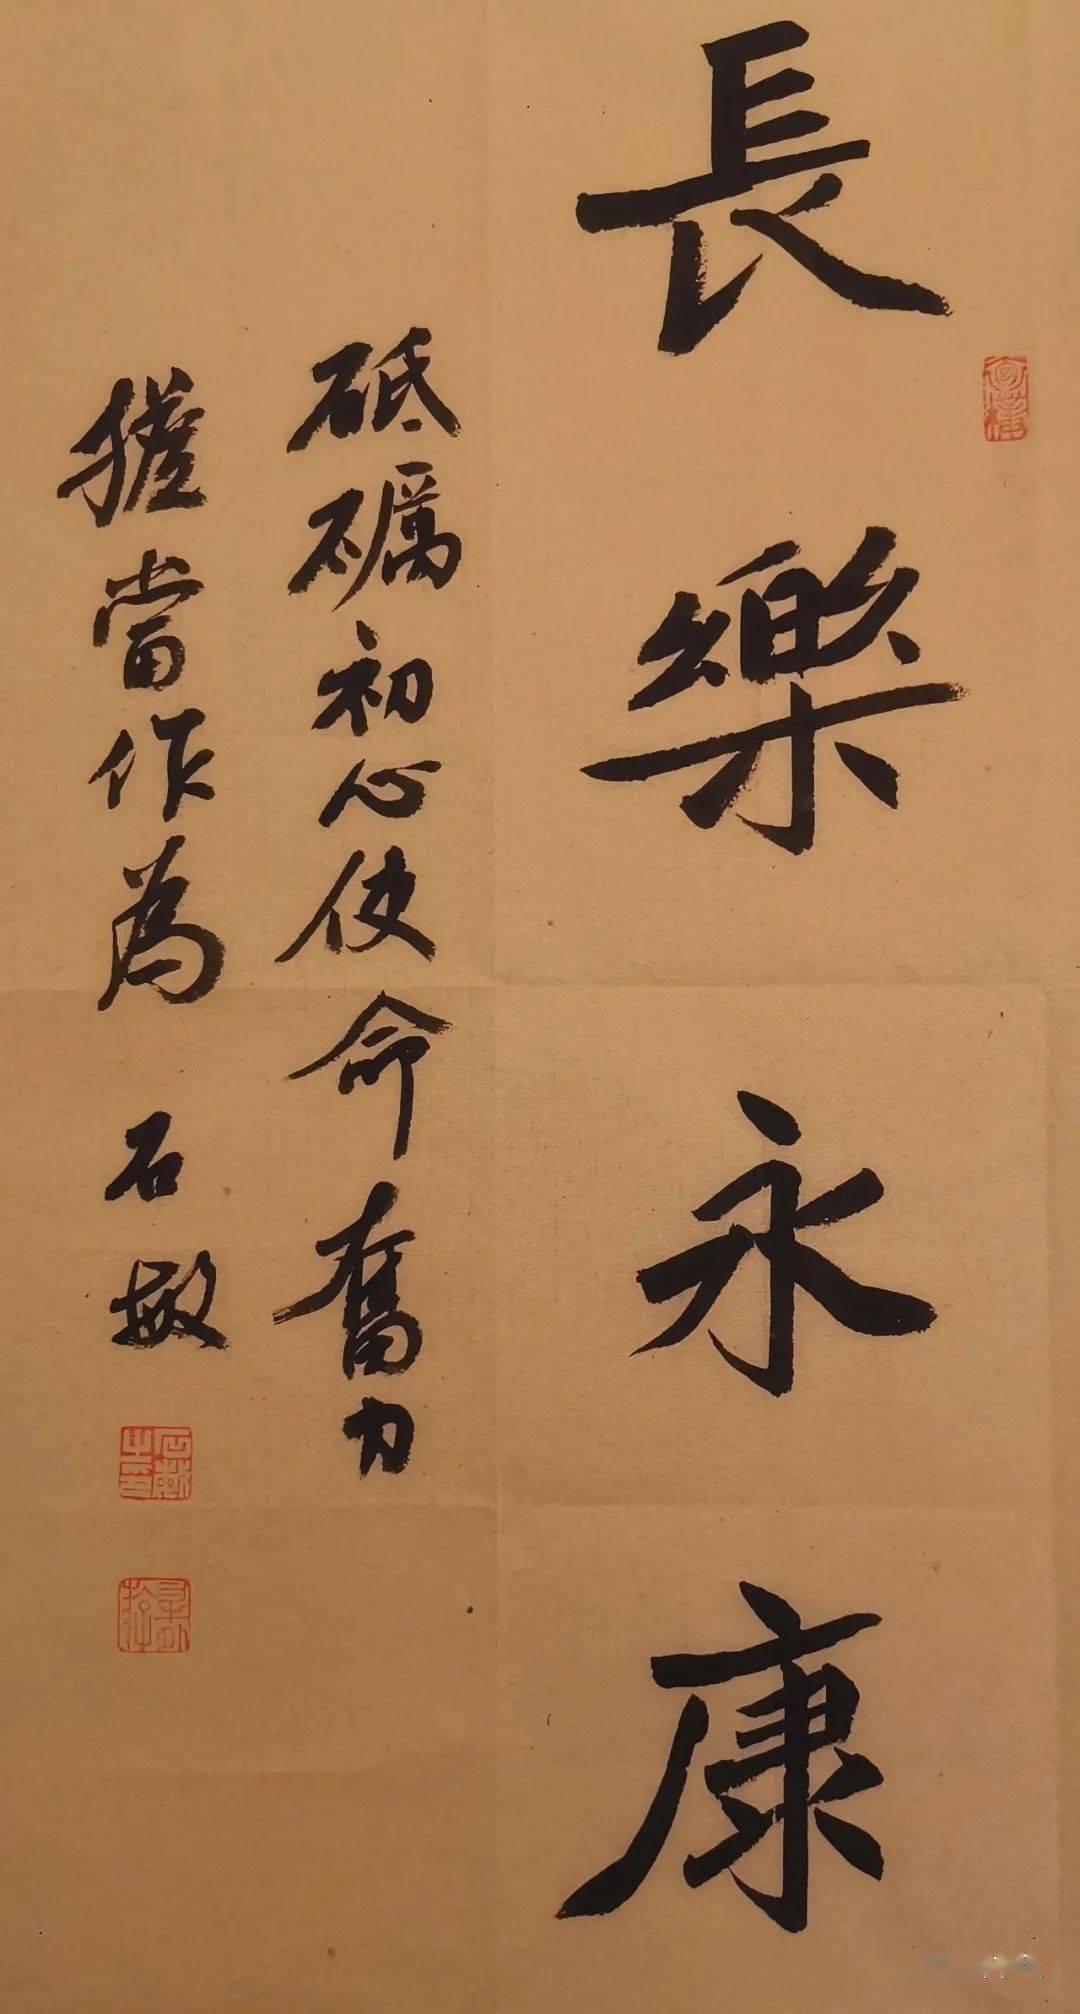 長樂永康
砥礪初心使命奮力
擔當作為 石敏
石敏之印